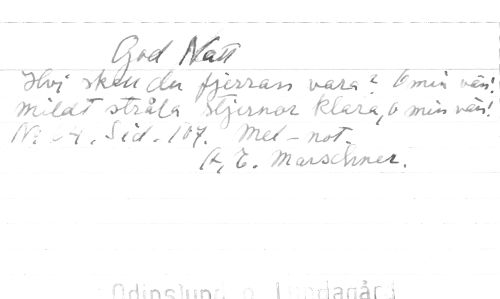 God Natt
Hvi skall du fjerran vara? O min vän!
mildt stråla Stjernor klara, O min vän!
N:o 4. Sid. 107. Mel-not.
A. E. Marschner.
Odinslund o Lundagård